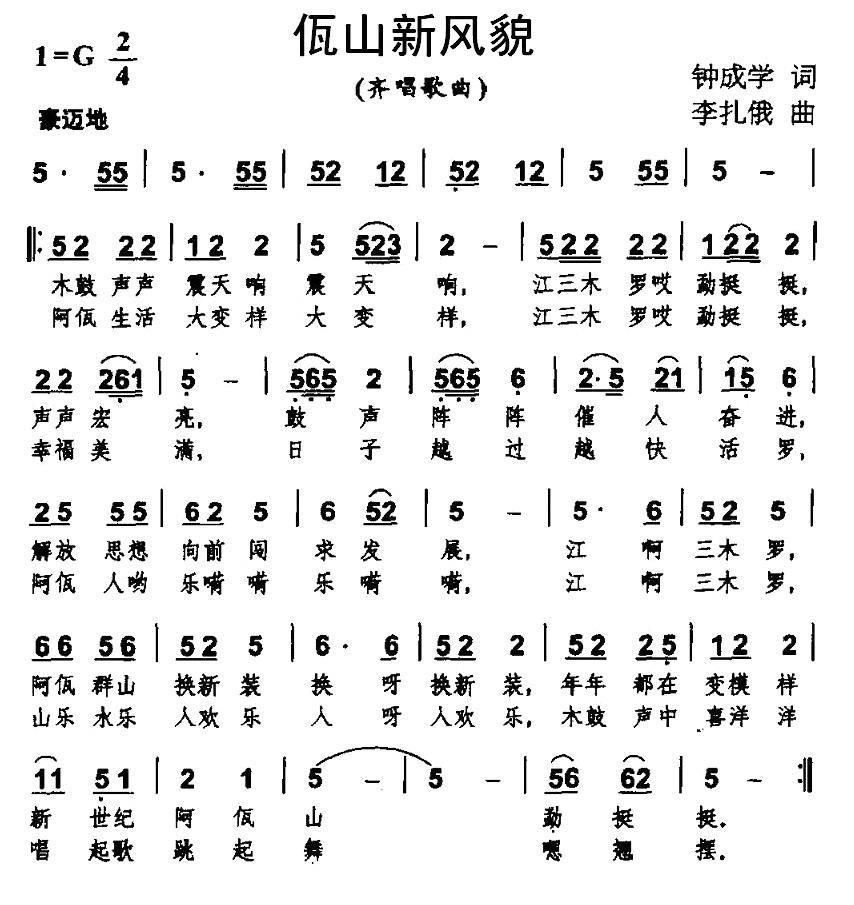 佤山新风貌
1=G 2/4
(齐唱歌曲)
钟成学 词
豪迈地
李扎俄 曲
5· 55 | 5· 55 | 52 12 | 52 12 | 5 55 | 5 – |
‖: 52 22 | 12 2 | 5 523 | 2 – | 522 22 | 122 2 |
木鼓 声声 震天 响 震 天 响, 江三木 罗哎 勐挺 挺,
阿佤 生活 大变 样 大 变 样, 江三木 罗哎 勐挺 挺,
22 261 | 5 – | 565 2 | 565 6 | 2·5 21 | 15 6 |
声声 宏 亮, 鼓 声 阵 阵 催 人 奋 进,
幸福 美 满, 日 子 越 过 越 快 活 罗,
25 55 | 62 5 | 6 52 | 5 – | 5· 6 | 52 5 |
解放 思想 向前 闯 求 发 展, 江 啊 三木 罗,
阿佤 人哟 乐嗬 嗬 乐 嗬 嗬, 江 啊 三木 罗,
66 56 | 52 5 | 6· 6 | 52 2 | 52 25 | 12 2 |
阿佤 群山 换新 装 换 呀 换新 装, 年年 都在 变模 样
山乐 水乐 人欢 乐 人 呀 人欢 乐, 木鼓 声中 喜洋 洋
11 51 | 2 1 | 5 – | 5 – | 56 62 | 5 – :‖
新 世纪 阿 佤 山 勐 挺 挺.
唱 起歌 跳 起 舞 嗯 翘 摆.